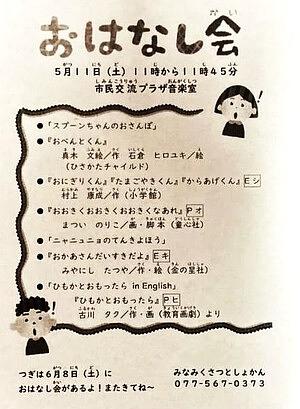 おはなし会
5月11日（土）11時から11時45分
市民交流プラザ音楽室
●「スプーンちゃんのおさんぽ」
●『おべんとくん』
真木 文絵／作 石倉 ヒロユキ／絵
（ひさかたチャイルド）
●『おにぎりくん』『たまごやきくん』『からあげくん』Eシ
村上 康成／作（小学館）
●『おおきくおおきくおおきくなあれ』Pオ
まつい のりこ／画・脚本（童心社）
●「ニャニュニョのてんきよほう」
●『おかあさんだいすきだよ』Eキ
みやにし たつや／作・絵（金の星社）
●「ひもかとおもったら in English」
『ひもかとおもったら』Pヒ
古川 タク／作・画（教育画劇）より
つぎは6月8日（土）に
おはなし会があるよ！またきてね～
みなみくさつとしょかん
077-567-0373